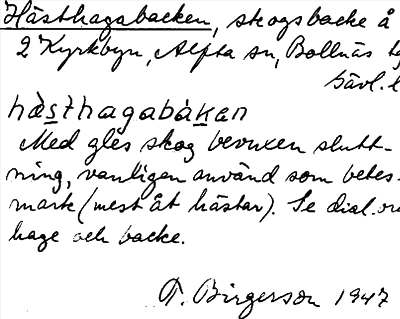 Hästhagabacken, skogsbacke å
2 Kyrkbyn, Alfta sn, Bollnäs
Gävl. l
hàsthagabàkan
Med gles skog bevuxen slutt-
ning, vanligen använd som betes-
mark (mest åt hästar). Se dial.
hage och backe.
T. Birgerson 1947